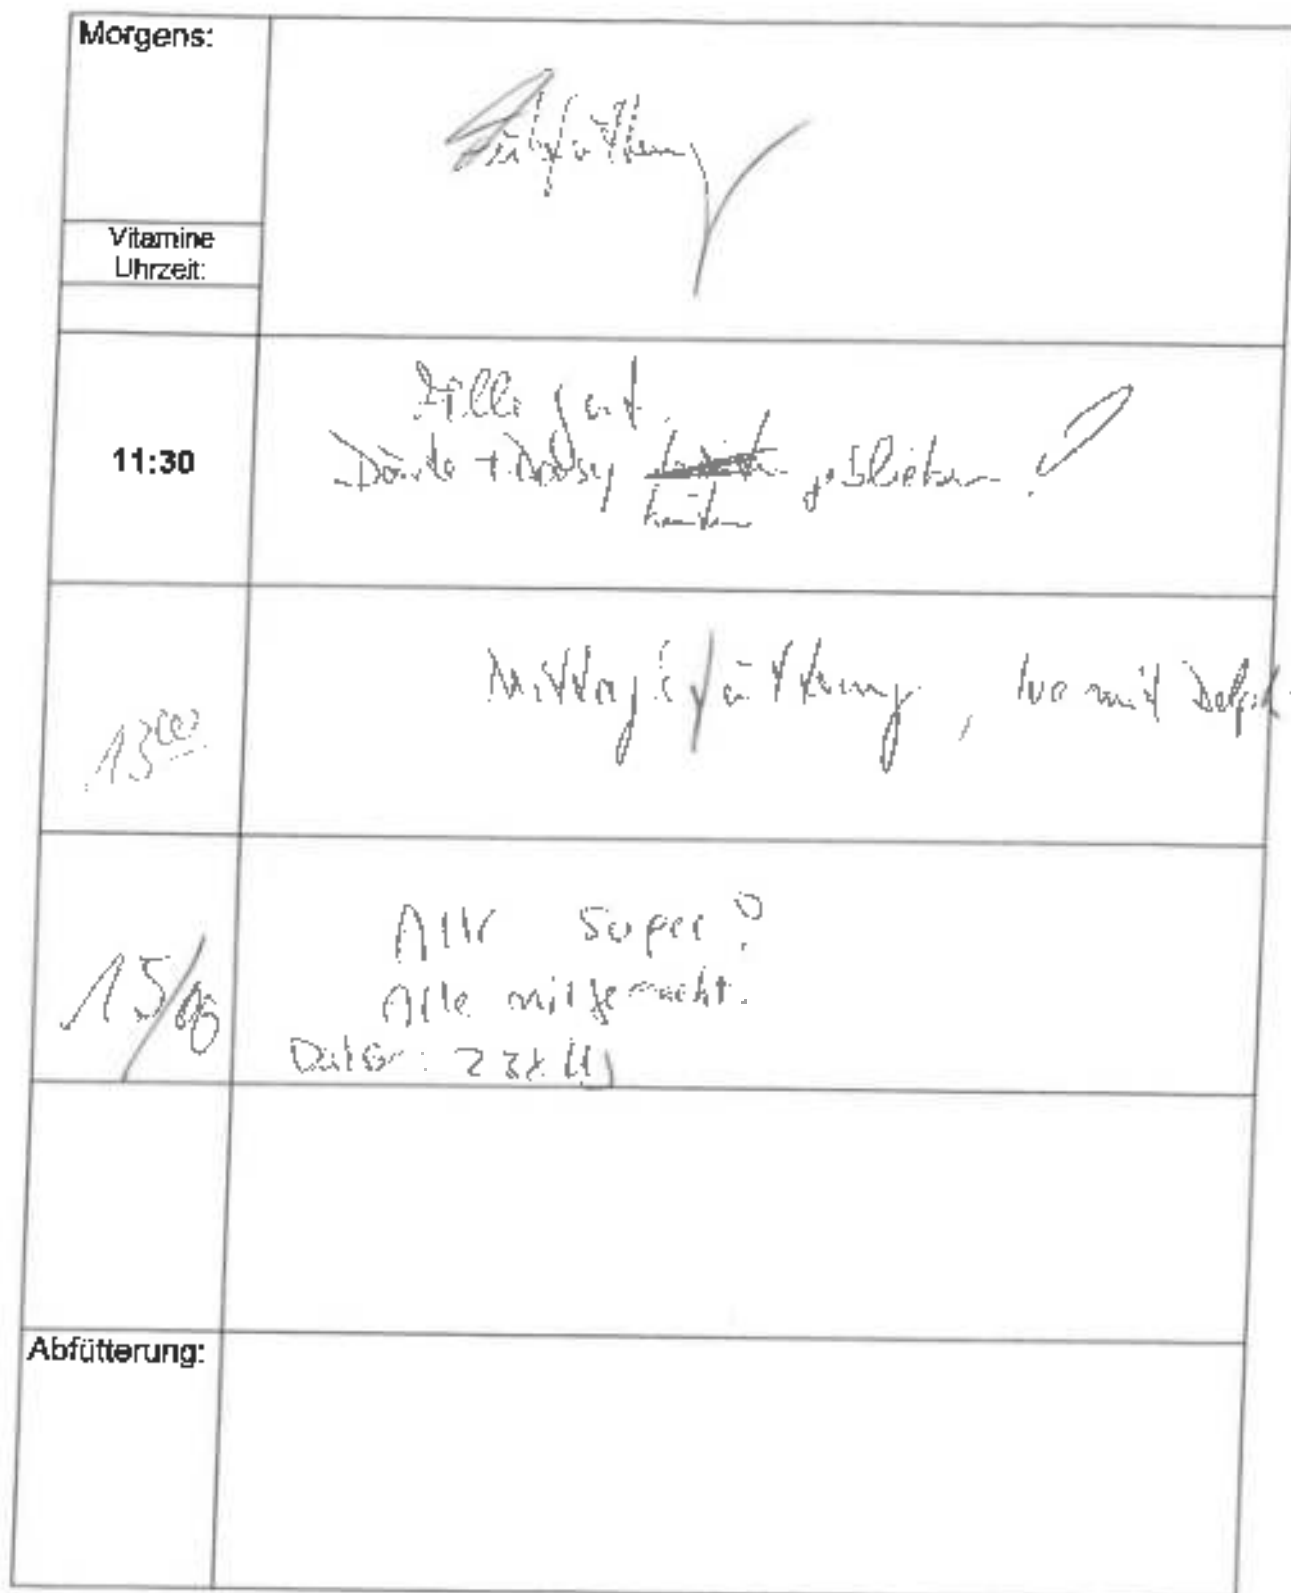 Morgens:
Frühfütterung
Vitamine
Uhrzeit:
11:30
Alle gut.
Dörte + Daisy hinten geblieben!
13 00
Mittagsfütterung, wo mit
15/
Alle super!
Alle mitgemacht.
Abfütterung: